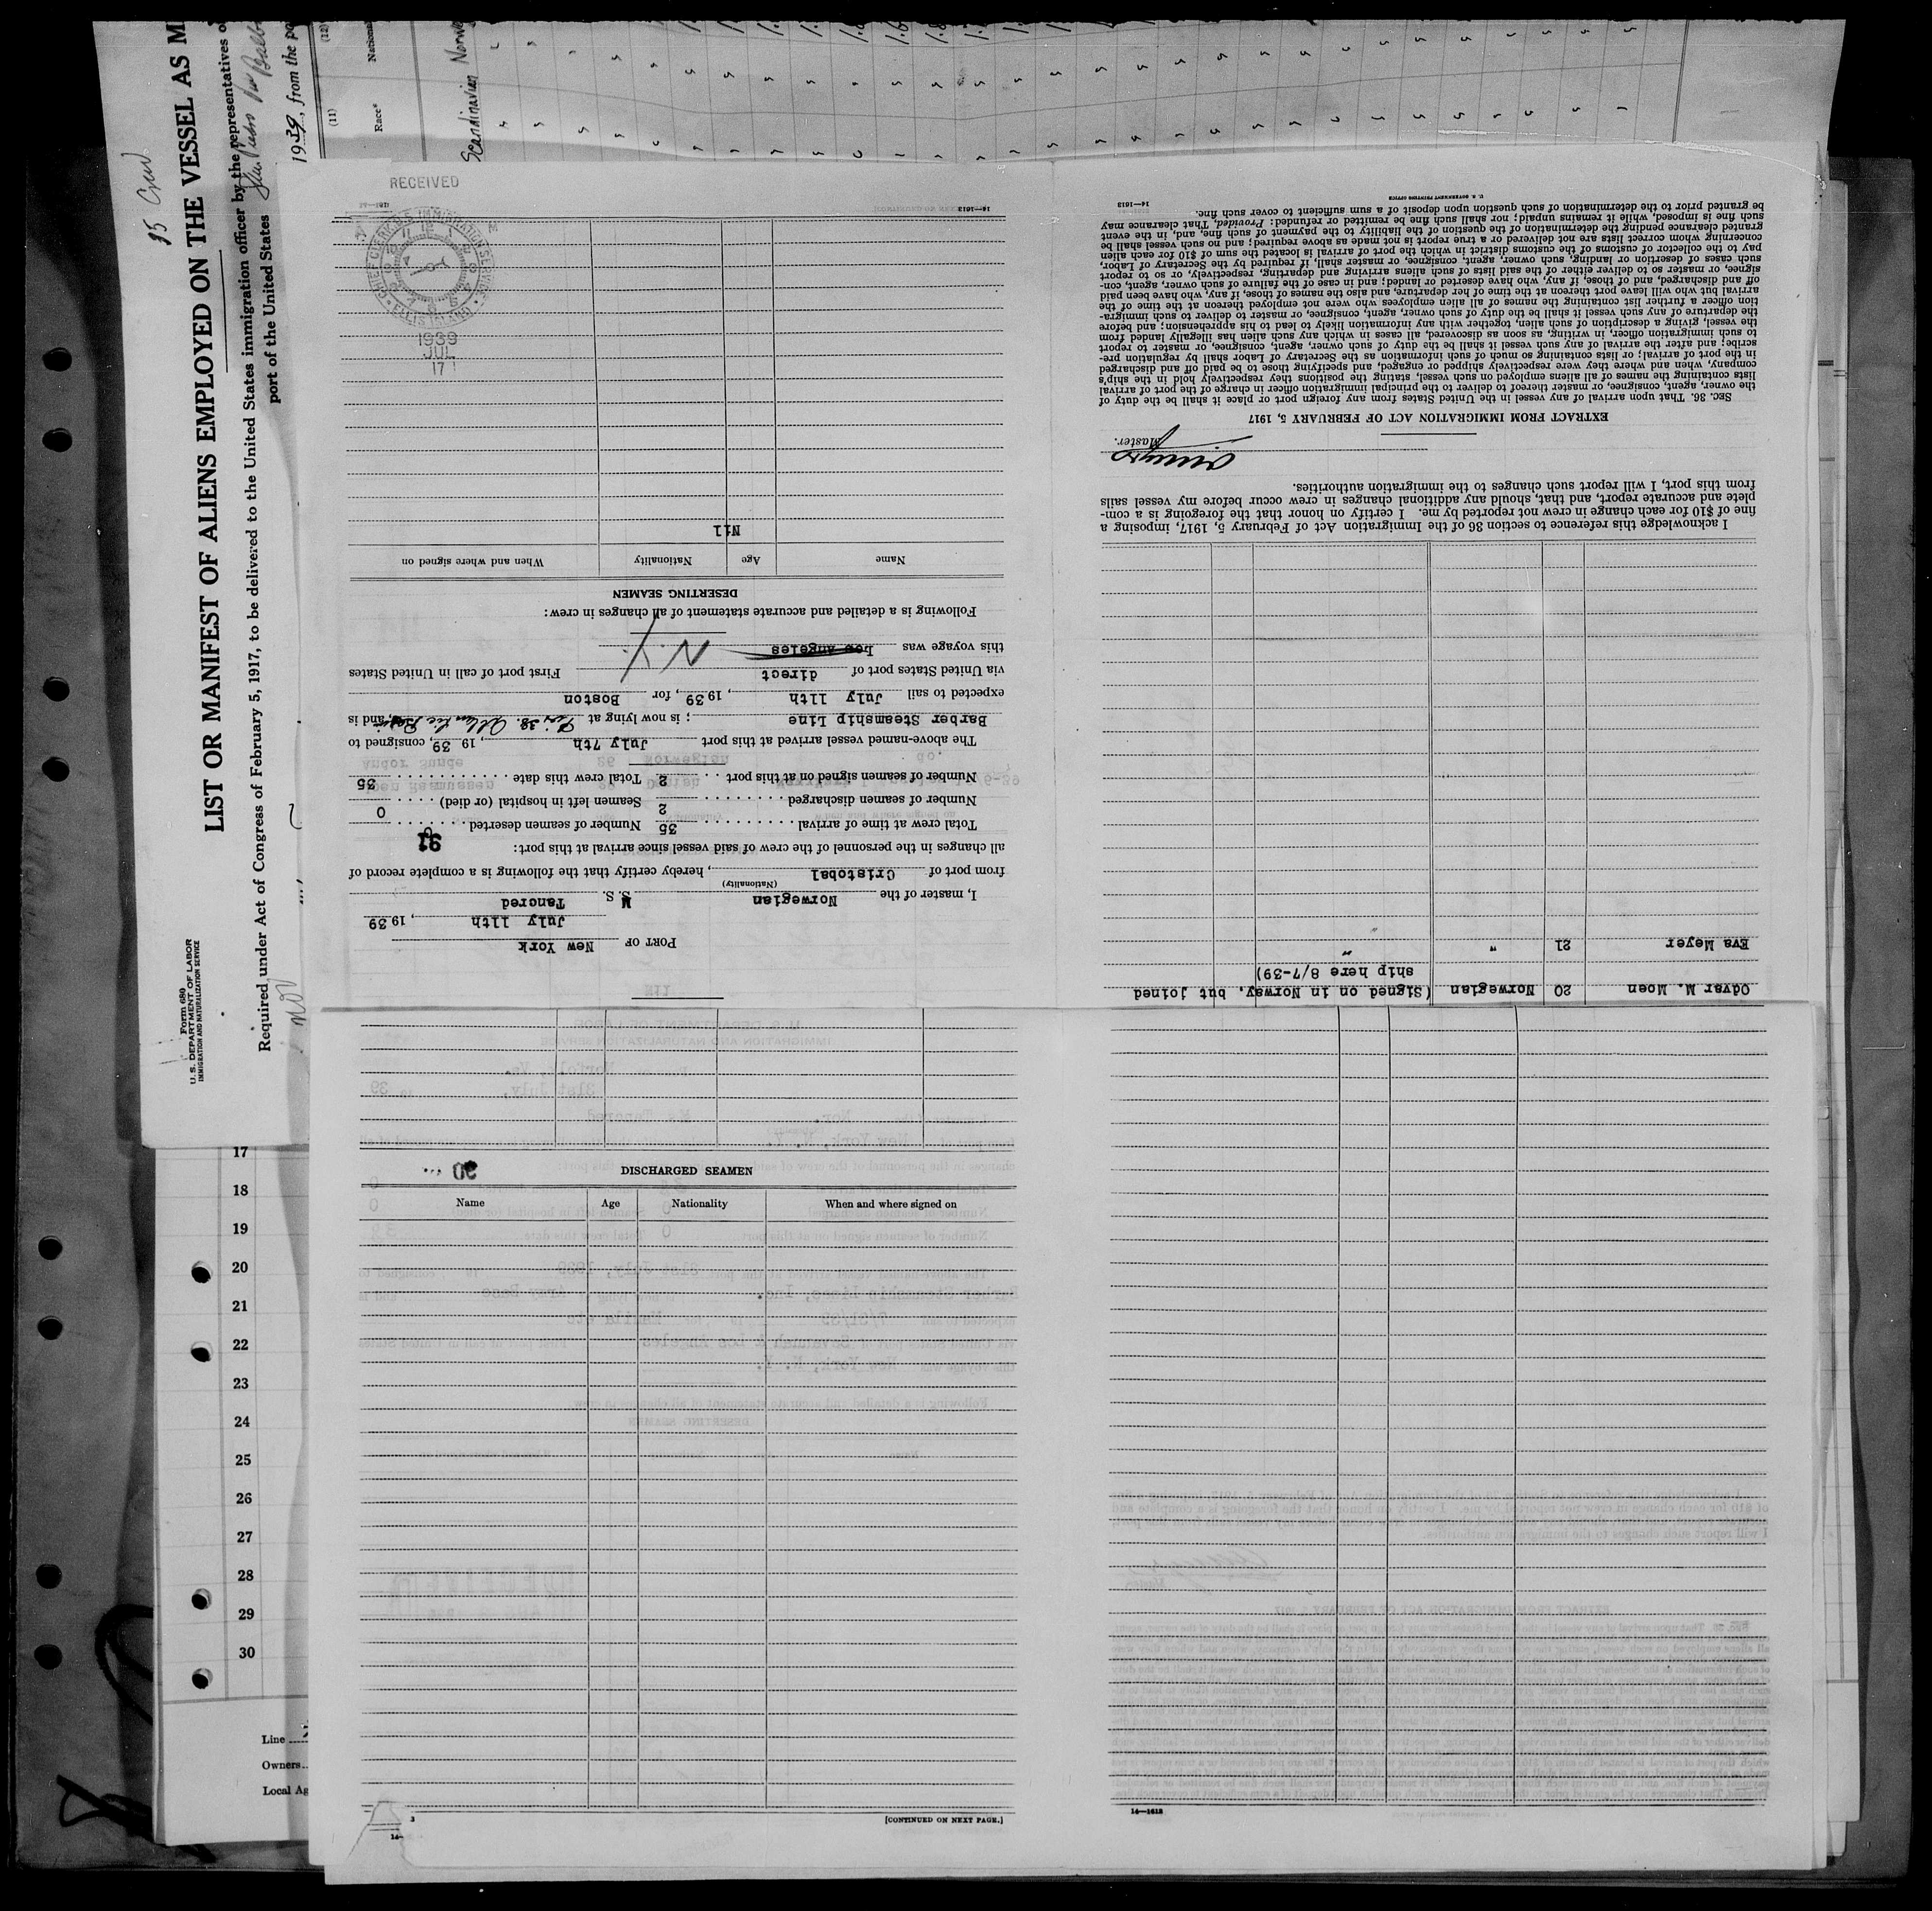 35 Crew
LIST OR MANIFEST OF ALIENS EMPLOYED ON THE VESSEL AS M
Required under Act of Congress of February 5, 1917, to be delivered to the United States immigration officer by the representatives o
port of the United States
1939, from the po
Form 680
U. S. DEPARTMENT OF LABOR
IMMIGRATION AND NATURALIZATION SERVICE
(11)
Race*
(12)
National
Scandinavian Norw
RECEIVED
CHIEF CLERK U.S. IMMIGRATION SERVICE
ELLIS ISLAND
1939
JUL
17
PORT OF New York
July 11th, 1939
I, master of the Norwegian M S. S. Tancred
(Nationality)
from port of Cristobal, hereby certify that the following is a complete record of
all changes in the personnel of the crew of said vessel since arrival at this port:
Total crew at time of arrival 35 Number of seamen deserted
Number of seamen discharged 2 Seamen left in hospital (or died) 0
Number of seamen signed on at this port 2 Total crew this date 35
The above-named vessel arrived at this port July 7th, 1939, consigned to
Barber Steamship Line; is now lying at Pier 38. Atlantic Basin, and is
expected to sail July 11th, 1939, for Boston
via United States port of direct First port of call in United States
this voyage was Los Angeles N.Y.
Following is a detailed and accurate statement of all changes in crew:
DESERTING SEAMEN
Name Age Nationality When and where signed on
Nil
14—1613
Odvar M. Moen 20 Norwegian (Signed on in Norway, but joined
ship here 8/7-39)
Eva Meyer 21 " "
I acknowledge this reference to section 36 of the Immigration Act of February 5, 1917, imposing a
fine of $10 for each change in crew not reported by me. I certify on honor that the foregoing is a com-
plete and accurate report, and that, should any additional changes in crew occur before my vessel sails
from this port, I will report such changes to the immigration authorities.
Master.
EXTRACT FROM IMMIGRATION ACT OF FEBRUARY 5, 1917
SEC. 36. That upon arrival of any vessel in the United States from any foreign port or place it shall be the duty of
the owner, agent, consignee, or master thereof to deliver to the principal immigration officer in charge of the port of arrival
lists containing the names of all aliens employed on such vessel, stating the positions they respectively hold in the ship's
company, when and where they were respectively shipped or engaged, and specifying those to be paid off and discharged
in the port of arrival; or lists containing so much of such information as the Secretary of Labor shall by regulation pre-
scribe; and after the arrival of any such vessel it shall be the duty of such owner, agent, consignee, or master to report
to such immigration officer, in writing, as soon as discovered, all cases in which any such alien has illegally landed from
the vessel, giving a description of such alien, together with any information likely to lead to his apprehension; and before
the departure of any such vessel it shall be the duty of such owner, agent, consignee, or master to deliver to such immigra-
tion officer a further list containing the names of all alien employees who were not employed thereon at the time of the
arrival but who will leave port thereon at the time of her departure, and also the names of those, if any, who have been paid
off and discharged, and of those, if any, who have deserted or landed; and in case of the failure of such owner, agent, con-
signee, or master so to deliver either of the said lists of such aliens arriving and departing, respectively, or so to report
such cases of desertion or landing, such owner, agent, consignee, or master shall, if required by the Secretary of Labor,
pay to the collector of customs of the customs district in which the port of arrival is located the sum of $10 for each alien
concerning whom correct lists are not delivered or a true report is not made as above required; and no such vessel shall be
granted clearance pending the determination of the question of the liability to the payment of such fine, and, in the event
such fine is imposed, while it remains unpaid; nor shall such fine be remitted or refunded: Provided, That clearance may
be granted prior to the determination of such question upon deposit of a sum sufficient to cover such fine.
14—1613
U. S. GOVERNMENT PRINTING OFFICE
DISCHARGED SEAMEN
Name Age Nationality When and where signed on
3
14—
[CONTINUED ON NEXT PAGE.]
14—1613
17
18
19
20
21
22
23
24
25
26
27
28
29
30
Line
Owners
Local Ag